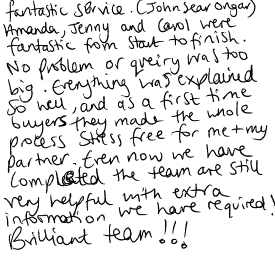 fantastic service. (John Sear Ongar)
Amanda, Jenny and Carol were
fantastic from start to finish.
No problem or queiry was too
big. Everything was explained
so well, and as a first time
buyers they made the whole
process stress free for me + my
partner. Even now we have
completed the team are still
very helpful with extra
information we have required!
Brilliant team!!!